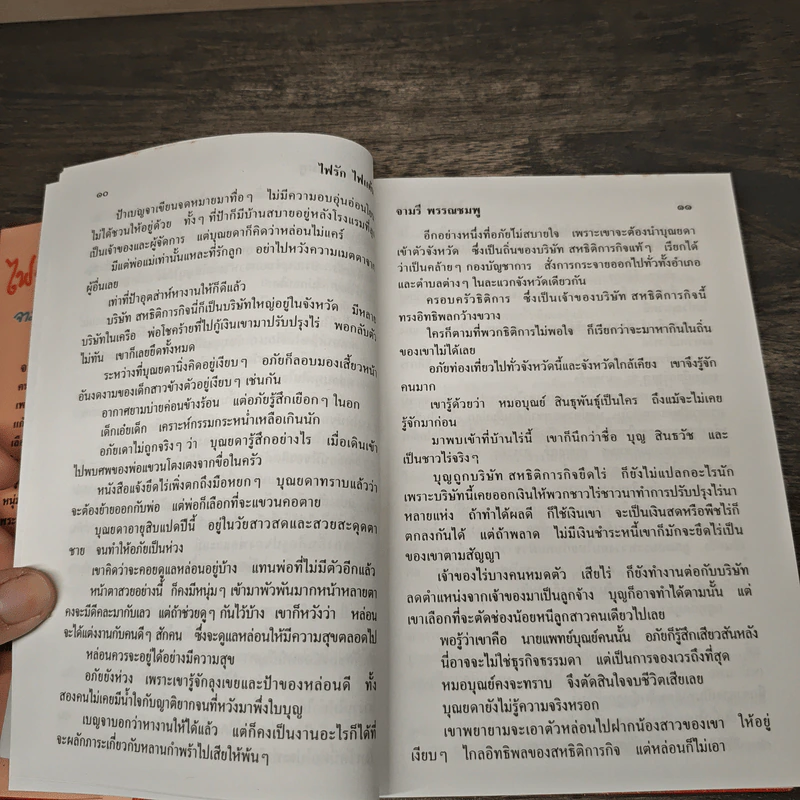 ๑๐
ไฟรัก ไฟแค้น
ป้าเบญจาเขียนจดหมายมาที่อๆ ไม่มีความอบอุ่นอ่อนโยน
ไม่ได้ชวนให้อยู่ด้วย ทั้งๆ ที่ป้าก็มีบ้านสบายอยู่หลังโรงแรมที่
เป็นเจ้าของและผู้จัดการ แต่บุณยดาก็คิดว่าหล่อนไม่แคร์
มีแต่พ่อแม่เท่านั้นแหละที่รักลูก อย่าไปหวังความเมตตาจาก
ผู้อื่นเลย
เท่าที่ป้าอุตส่าห์หางานให้ก็ดีแล้ว
บริษัท สหธิติการกิจนี่ก็เป็นบริษัทใหญ่อยู่ในจังหวัด มีหลาย
บริษัทในเครือ พ่อโชคร้ายที่ไปกู้เงินเขามาปรับปรุงไร่ พอกลับตัว
ไม่ทัน เขาก็เลยยึดทั้งหมด
ระหว่างที่บุณยดานิ่งคิดอยู่เงียบๆ อภัยก็ลอบมองเสี้ยวหน้า
อันงดงามของเด็กสาวข้างตัวอยู่เงียบๆ เช่นกัน
อากาศยามบ่ายค่อนข้างร้อน แต่อภัยรู้สึกเยือกๆ ในอก
เด็กเอ๋ยเด็ก เคราะห์กรรมกระหน่ำเหลือเกินนัก
อภัยเดาไม่ถูกจริงๆ ว่า บุณยดารู้สึกอย่างไร เมื่อเดินเข้า
ไปพบศพของพ่อแขวนโตงเตงจากขื่อในครัว
หนังสือแจ้งยึดไร่เพิ่งตกถึงมือหยกๆ บุณยดาทราบแล้วว่า
จะต้องย้ายออกกับพ่อ แต่พ่อก็เลือกที่จะแขวนคอตาย
บุณยดาอายุสิบแปดปีนี้ อยู่ในวัยสาวสดและสวยสะดุดตา
ชาย จนทำให้อภัยเป็นห่วง
เขาคิดว่าจะคอยดูแลหล่อนอยู่บ้าง แทนพ่อที่ไม่มีตัวอีกแล้ว
หน้าตาสวยอย่างนี้ ก็คงมีหนุ่มๆ เข้ามาพัวพันมากหน้าหลายตา
คงจะมีดีคละมากับเลว แต่ถ้าช่วยดูๆ กันไว้บ้าง เขาก็หวังว่า หล่อน
จะได้แต่งงานกับคนดีๆ สักคน ซึ่งจะดูแลหล่อนให้มีความสุขตลอดไป
หล่อนควรจะอยู่ได้อย่างมีความสุข
อภัยยังห่วง เพราะเขารู้จักลุงเขยและป้าของหล่อนดี ทั้ง
สองคนไม่เคยมีน้ำใจกับญาติยากจนที่หวังมาพึ่งใบบุญ
เบญจาบอกว่าหางานให้ได้แล้ว แต่ก็คงเป็นงานอะไรก็ได้ที่
จะผลักภาระเกี่ยวกับหลานกำพร้าไปเสียให้พ้นๆ
จามรี พรรณชมพู
๑๑
อีกอย่างหนึ่งที่อภัยไม่สบายใจ เพราะเขาจะต้องนำบุณยดา
เข้าตัวจังหวัด ซึ่งเป็นถิ่นของบริษัท สหธิติการกิจแท้ๆ เรียกได้
ว่าเป็นคล้ายๆ กองบัญชาการ สั่งการกระจายออกไปทั่วทั้งอำเภอ
และตำบลต่างๆ ในละแวกจังหวัดเดียวกัน
ครอบครัวธิติการ ซึ่งเป็นเจ้าของบริษัท สหธิติการกิจนี้
ทรงอิทธิพลกว้างขวาง
ใครก็ตามที่พวกธิติการไม่พอใจ ก็เรียกว่าจะมาหากินในถิ่น
ของเขาไม่ได้เลย
อภัยท่องเที่ยวไปทั่วจังหวัดนี้และจังหวัดใกล้เคียง เขาจึงรู้จัก
คนมาก
เขารู้ด้วยว่า หมอบุณย์ สินธุพันธุ์เป็นใคร ถึงแม้จะไม่เคย
รู้จักมาก่อน
มาพบเข้าที่บ้านไร่นี้ เขาก็นึกว่าชื่อ บุญ สินธวัช และ
เป็นชาวไร่จริงๆ
บุญถูกบริษัท สหธิติการกิจยึดไร่ ก็ยังไม่แปลกอะไรนัก
เพราะบริษัทนี้เคยออกเงินให้พวกชาวไร่ชาวนาทำการปรับปรุงไร่นา
หลายแห่ง ถ้าทำได้ผลดี ก็ใช้เงินเขา จะเป็นเงินสดหรือพืชไร่ก็
ตกลงกันได้ แต่ถ้าพลาด ไม่มีเงินชำระหนี้เขาก็มักจะยึดไร่เป็น
ของเขาตามสัญญา
เจ้าของไร่บางคนหมดตัว เสียไร่ ก็ยังทำงานต่อกับบริษัท
ลดตำแหน่งจากเจ้าของมาเป็นลูกจ้าง บุญก็อาจทำได้ตามนั้น แต่
เขาเลือกที่จะตัดช่องน้อยหนีลูกสาวคนเดียวไปเลย
พอรู้ว่าเขาคือ นายแพทย์บุณย์คนนั้น อภัยก็รู้สึกเสียวสันหลัง
นี่อาจจะไม่ใช่ธุรกิจธรรมดา แต่เป็นการจองเวรถึงที่สุด
หมอบุณย์คงจะทราบ จึงตัดสินใจจบชีวิตเสียเลย
บุณยดายังไม่รู้ความจริงหรอก
เขาพยายามจะเอาตัวหล่อนไปฝากน้องสาวของเขา ให้อยู่
เงียบๆ ไกลอิทธิพลของสหธิติการกิจ แต่หล่อนก็ไม่เอา